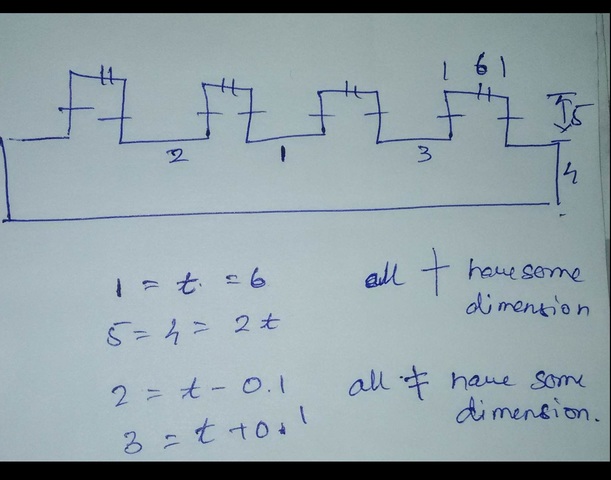 1 6 1
5
2 1 3
4
1 = t. = 6 all + have some dimension
5 = 4 = 2t
2 = t - 0.1 all ≠ have some dimension.
3 = t + 0.1